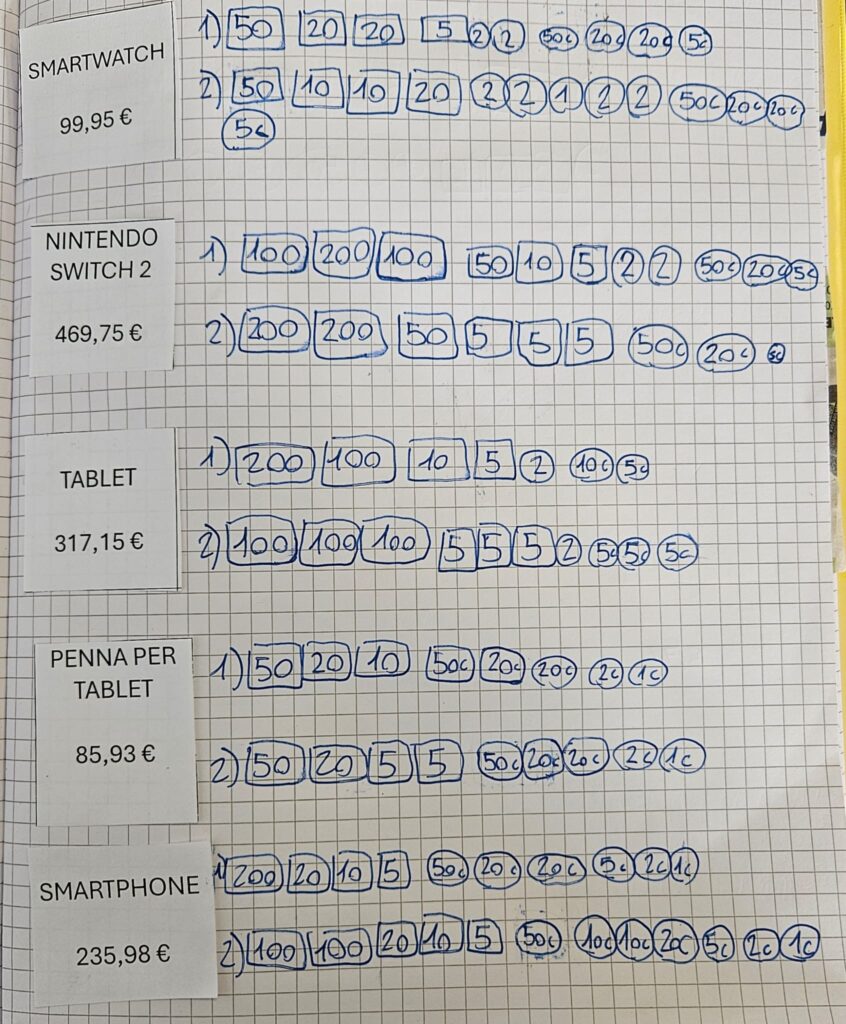 SMARTWATCH
99,95 €
1) 50 20 20 5 2 2 50c 20c 20c 5c
2) 50 10 10 20 2 2 1 2 2 50c 20c 20c
5c
NINTENDO
SWITCH 2
469,75 €
1) 100 200 100 50 10 5 2 2 50c 20c 5c
2) 200 200 50 5 5 5 50c 20c 5c
TABLET
317,15 €
1) 200 100 10 5 2 10c 5c
2) 100 100 100 5 5 5 2 5c 5c 5c
PENNA PER
TABLET
85,93 €
1) 50 20 10 50c 20c 20c 2c 1c
2) 50 20 5 5 50c 20c 20c 2c 1c
SMARTPHONE
235,98 €
1) 200 20 10 5 50c 20c 20c 5c 2c 1c
2) 100 100 20 10 5 50c 10c 10c 20c 5c 2c 1c